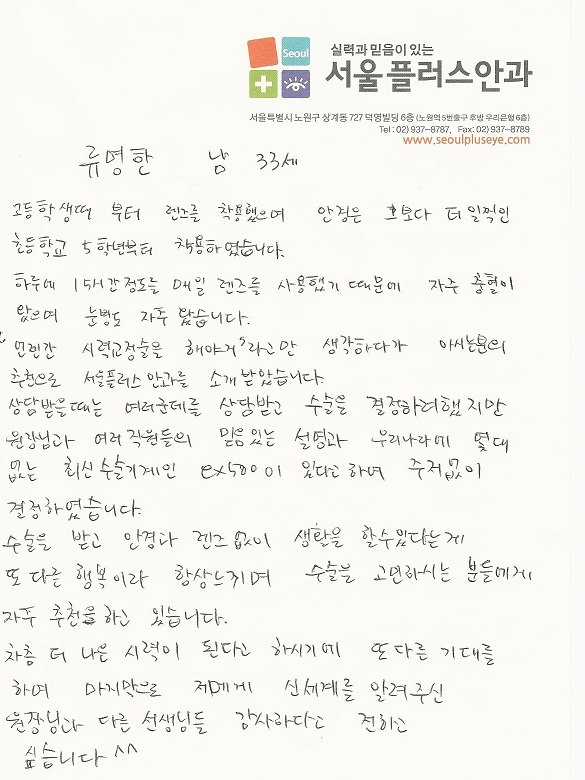 Seoul
실력과 믿음이 있는
서울플러스안과
서울특별시 노원구 상계동 727 덕영빌딩 6층 (노원역 5번출구 후방 우리은행 6층)
Tel : 02) 937-8787, Fax: 02) 937-8789
www.seoulpluseye.com
류영한 남 33세
고등학생때 부터 렌즈를 착용했으며 안경은 그보다 더 일찍인
초등학교 5학년부터 착용하였습니다.
하루에 15시간정도를 매일 렌즈를 사용했기 때문에 자주 충혈이
왔으며 눈병도 자주 왔습니다.
언젠간 시력교정술을 해야겠다라고만 생각하다가 아시는분의
추천으로 서울플러스안과를 소개받았습니다.
상담받을때는 여러군데를 상담받고 수술을 결정하려했지만
원장님과 여러직원들의 믿음있는 설명과 우리나라에 몇대
없는 최신수술기계인 ex500이 있다고하여 주저없이
결정하였습니다.
수술을 받고 안경과 렌즈없이 생활을 할수있다는게
또 다른 행복이라 항상느끼며 수술을 고민하시는 분들에게
자주 추천을 하고 있습니다.
차츰 더 나은 시력이 된다고 하시기에 또다른 기대를
하며 마지막으로 저에게 신세계를 알려주신
원장님과 다른 선생님들 감사하다고 전하고
싶습니다 ^^